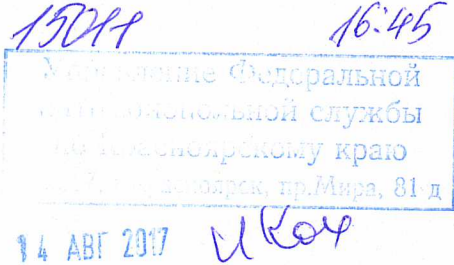 15011 16:45
Управление Федеральной
антимонопольной службы
по Красноярскому краю
Красноярск, пр.Мира, 81 д
14 АВГ 2017